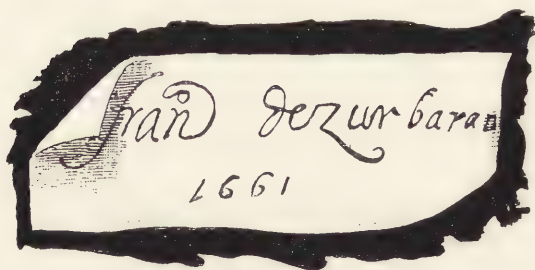 Franco dezurbaran
1661